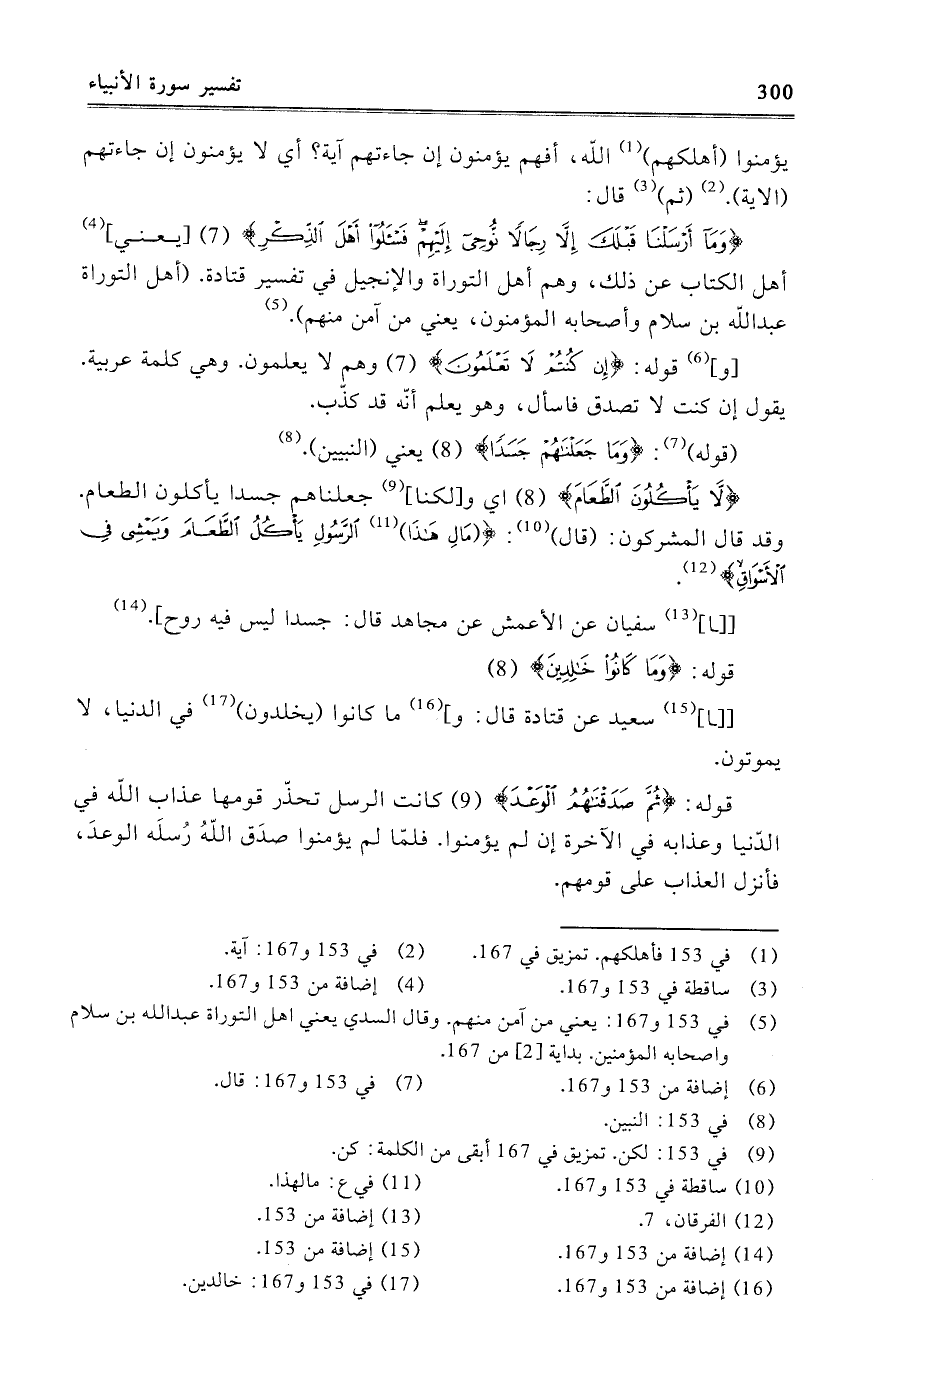 300
تفسير سورة الأنبياء
يؤمنوا (أهلكهم)(1) الله، أفهم يؤمنون إن جاءتهم آية؟ أي لا يؤمنون إن جاءتهم
(الاية).(2) (ثم)(3) قال:
﴿وَمَآ أَرْسَلْنَا قَبْلَكَ إِلَّا رِجَالًا نُّوحِىٓ إِلَيْهِمْ ۖ فَسْـَٔلُوٓا۟ أَهْلَ ٱلذِّكْرِ﴾ (7) [يـعـنـي](4)
أهل الكتاب عن ذلك، وهم أهل التوراة والإنجيل في تفسير قتادة. (أهل التوراة
عبدالله بن سلام وأصحابه المؤمنون، يعني من آمن منهم).(5)
[و](6) قوله: ﴿إِن كُنتُمْ لَا تَعْلَمُونَ﴾ (7) وهم لا يعلمون. وهي كلمة عربية.
يقول إن كنت لا تصدق فاسأل، وهو يعلم أنّه قد كذّب.
(قوله)(7): ﴿وَمَا جَعَلْنَٰهُمْ جَسَدًا﴾ (8) يعني (النبيين).(8)
﴿لَّا يَأْكُلُونَ ٱلطَّعَامَ﴾ (8) اي و[لكنا](9) جعلناهم جسدا يأكلون الطعام.
وقد قال المشركون: (قال)(10): ﴿(مَالِ هَٰذَا)(11) ٱلرَّسُولِ يَأْكُلُ ٱلطَّعَامَ وَيَمْشِى فِى
ٱلْأَسْوَاقِ ۙ﴾(12).
[[نا](13) سفيان عن الأعمش عن مجاهد قال: جسدا ليس فيه روح].(14)
قوله: ﴿وَمَا كَانُوا۟ خَٰلِدِينَ﴾ (8)
[[نا](15) سعيد عن قتادة قال: و](16) ما كانوا (يخلدون)(17) في الدنيا، لا
يموتون.
قوله: ﴿ثُمَّ صَدَقْنَٰهُمُ ٱلْوَعْدَ﴾ (9) كانت الرسل تحذّر قومها عذاب الله في
الدّنيا وعذابه في الآخرة إن لم يؤمنوا. فلمّا لم يؤمنوا صدَق اللهُ رُسلَه الوعدَ،
فأنزل العذاب على قومهم.
(1) في 153 فأهلكهم. تمزيق في 167. (2) في 153 و167: آية.
(3) ساقطة في 153 و167. (4) إضافة من 153 و167.
(5) في 153 و167: يعني من آمن منهم. وقال السدي يعني اهل التوراة عبدالله بن سلام
واصحابه المؤمنين. بداية [2] من 167.
(6) إضافة من 153 و167. (7) في 153 و167: قال.
(8) في 153: النبين.
(9) في 153: لكن. تمزيق في 167 أبقى من الكلمة: كن.
(10) ساقطة في 153 و167. (11) في ع: مالهذا.
(12) الفرقان، 7. (13) إضافة من 153.
(14) إضافة من 153 و167. (15) إضافة من 153.
(16) إضافة من 153 و167. (17) في 153 و167: خالدين.